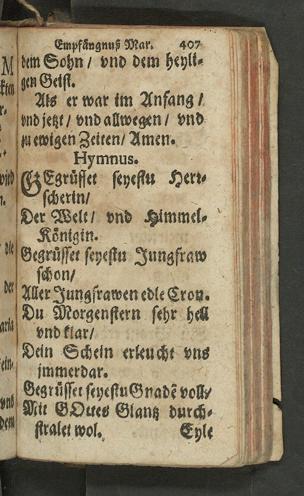 Empfängnuß Mar. 407
dem Sohn / vnd dem heyli-
gen Geist.
Als er war im Anfang /
vnd jetzt / vnd allwegen / vnd
zu ewigen Zeiten / Amen.
Hymnus.
GEgrüsset seyestu Herr-
scherin /
Der Welt / vnd Himmel-
Königin.
Gegrüsset seyestu Jungfraw
schon /
Aller Jungfrawen edle Cron.
Du Morgenstern sehr hell
vnd klar /
Dein Schein erleucht vns
jmmerdar.
Gegrüsset seyestu Gnadē voll /
Mit GOttes Glantz durch-
stralet wol. Eyle